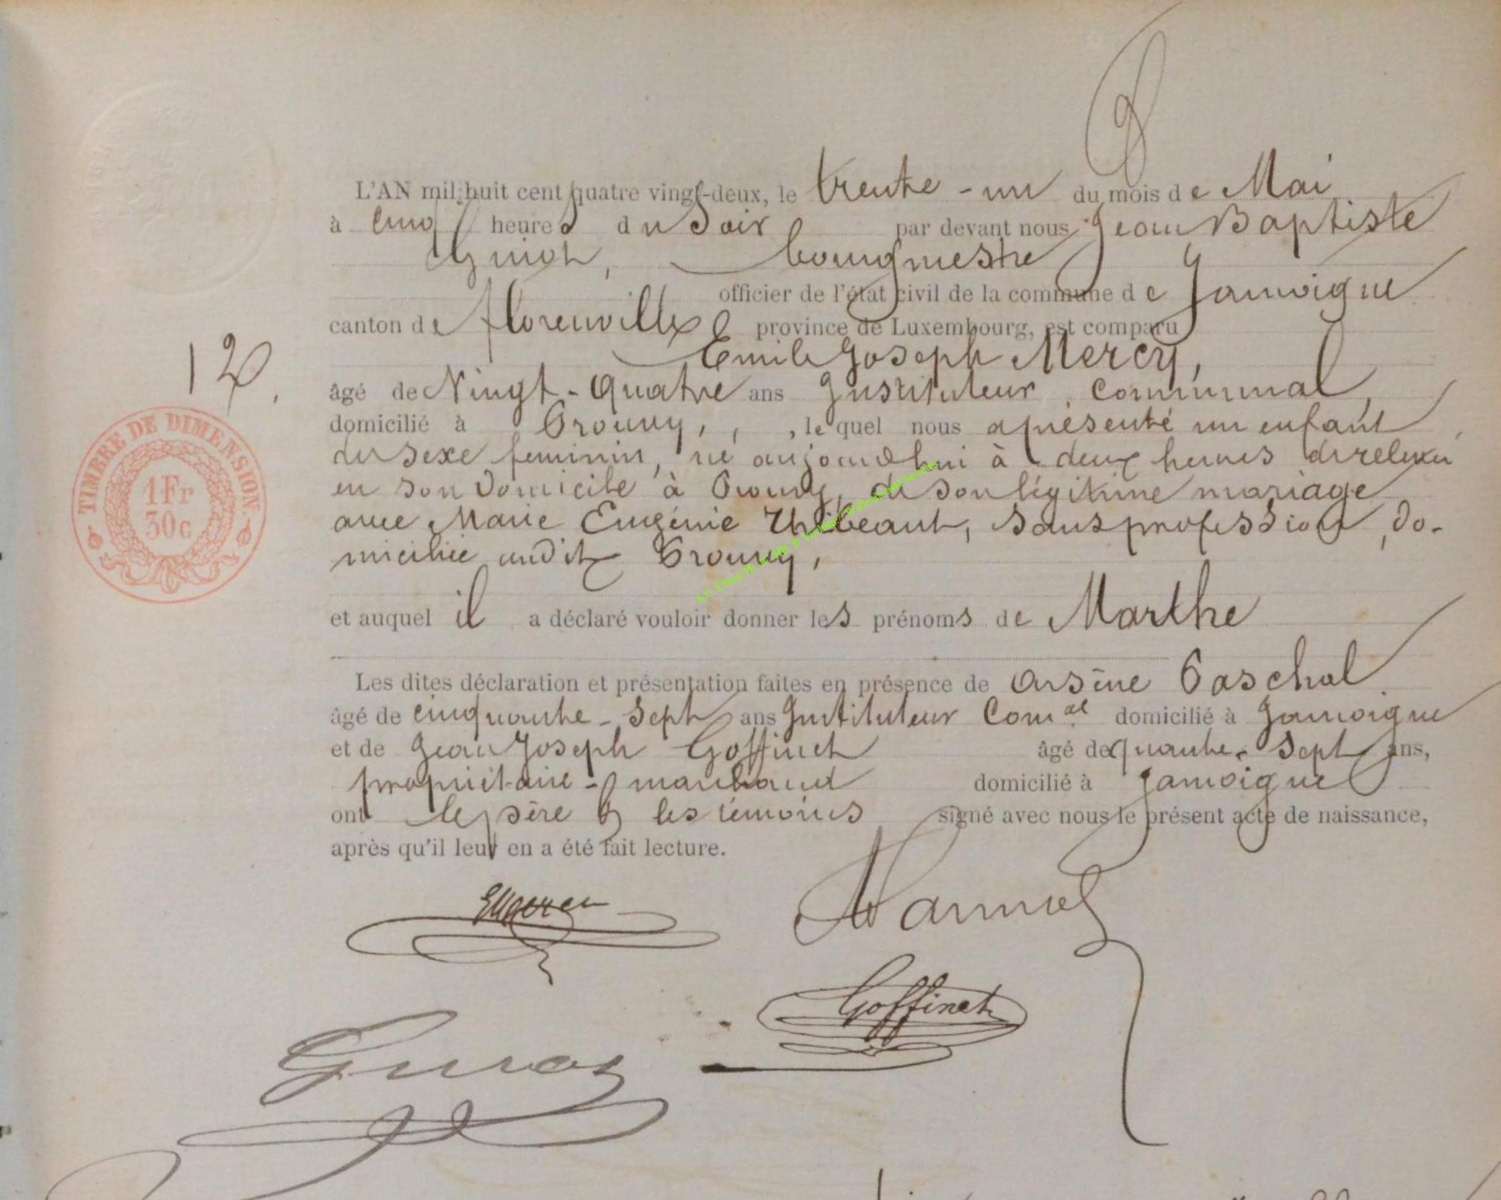 L'AN mil huit cent quatre vingt-deux, le trente-un du mois de Mai
à cinq heures du Soir par devant nous Jean Baptiste
bourgmestre
officier de l'état civil de la commune de Jamoigne
canton de Florenville province de Luxembourg, est comparu
Emile Joseph Mercy,
12.
âgé de Vingt-quatre ans Instituteur communal,
domicilié à Prouvy, , , lequel nous a présenté un enfant
du sexe feminin, né aujourdhui à deux heures du relevée
en son domicile à Prouvy, de son légitime mariage
avec Marie Eugénie Thibeaut, sans profession, do-
miciliée audit Prouvy,
TIMBRE DE DIMENSION
1Fr
30c
et auquel il a déclaré vouloir donner les prénoms de Marthe
Les dites déclaration et présentation faites en présence de Arsène Paschal
âgé de cinquante-sept ans Instituteur Com.al domicilié à Jamoigne
et de Jean Joseph Goffinet âgé de quarante-sept ans,
propriétaire-marchand domicilié à Jamoigne
ont le père & les témoins signé avec nous le présent acte de naissance,
après qu'il leur en a été fait lecture.
Goffinet